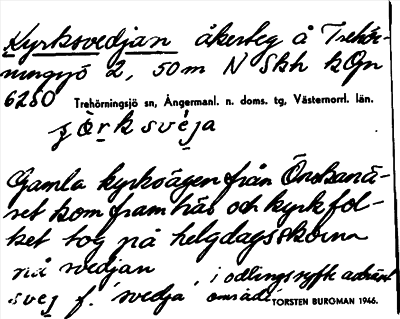 Kyrksvedjan åkerteg å Trehör-
ningsjö 2, 50 m N Skh k Gn
6260 Trehörningsjö sn, Ångermanl. n. doms. tg, Västernorrl. län.
Gamla kyrkvägen från Örskanä-
set kom fram här och kyrkfol-
ket tog på helgdagsskorna
på svedjan
svej f. 'svedja, i odlingssyfte
område'
TORSTEN BUROMAN 1946.